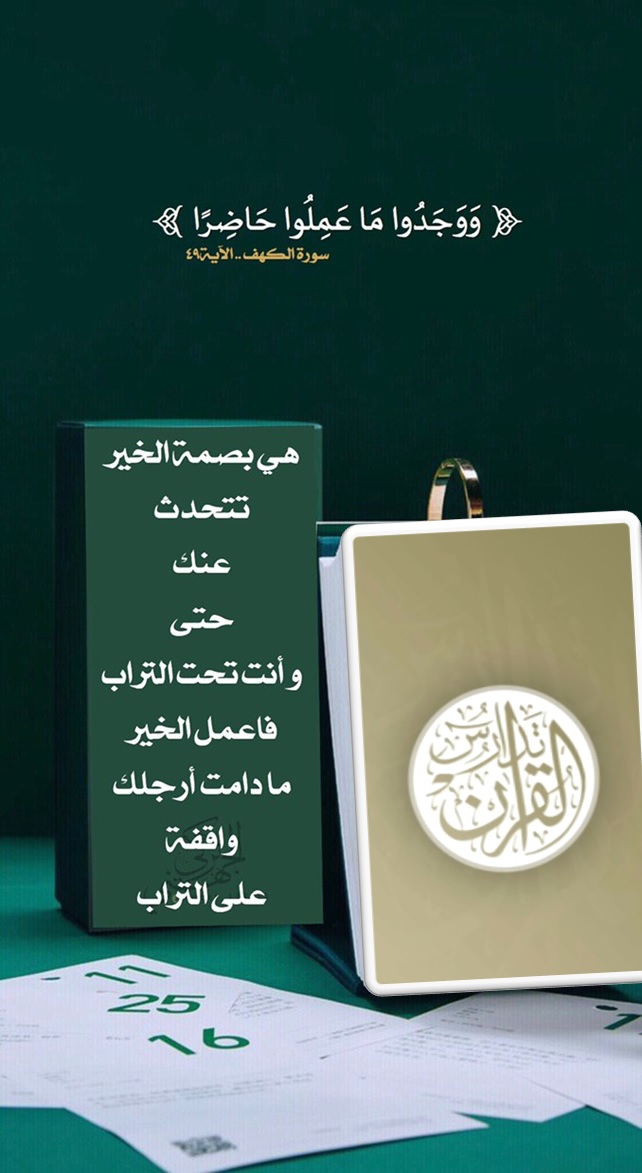 ﴿ وَوَجَدُوا مَا عَمِلُوا حَاضِرًا ﴾
سورة الكهف .. الآية ٤٩
هي بصمة الخير
تتحدث
عنك
حتى
وأنت تحت التراب
فاعمل الخير
ما دامت أرجلك
واقفة
على التراب
تدارس
القرآن
11
25
16
1